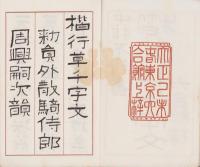 大正己未
楷行草千字文
勅員外散騎侍郎
周興嗣次韻